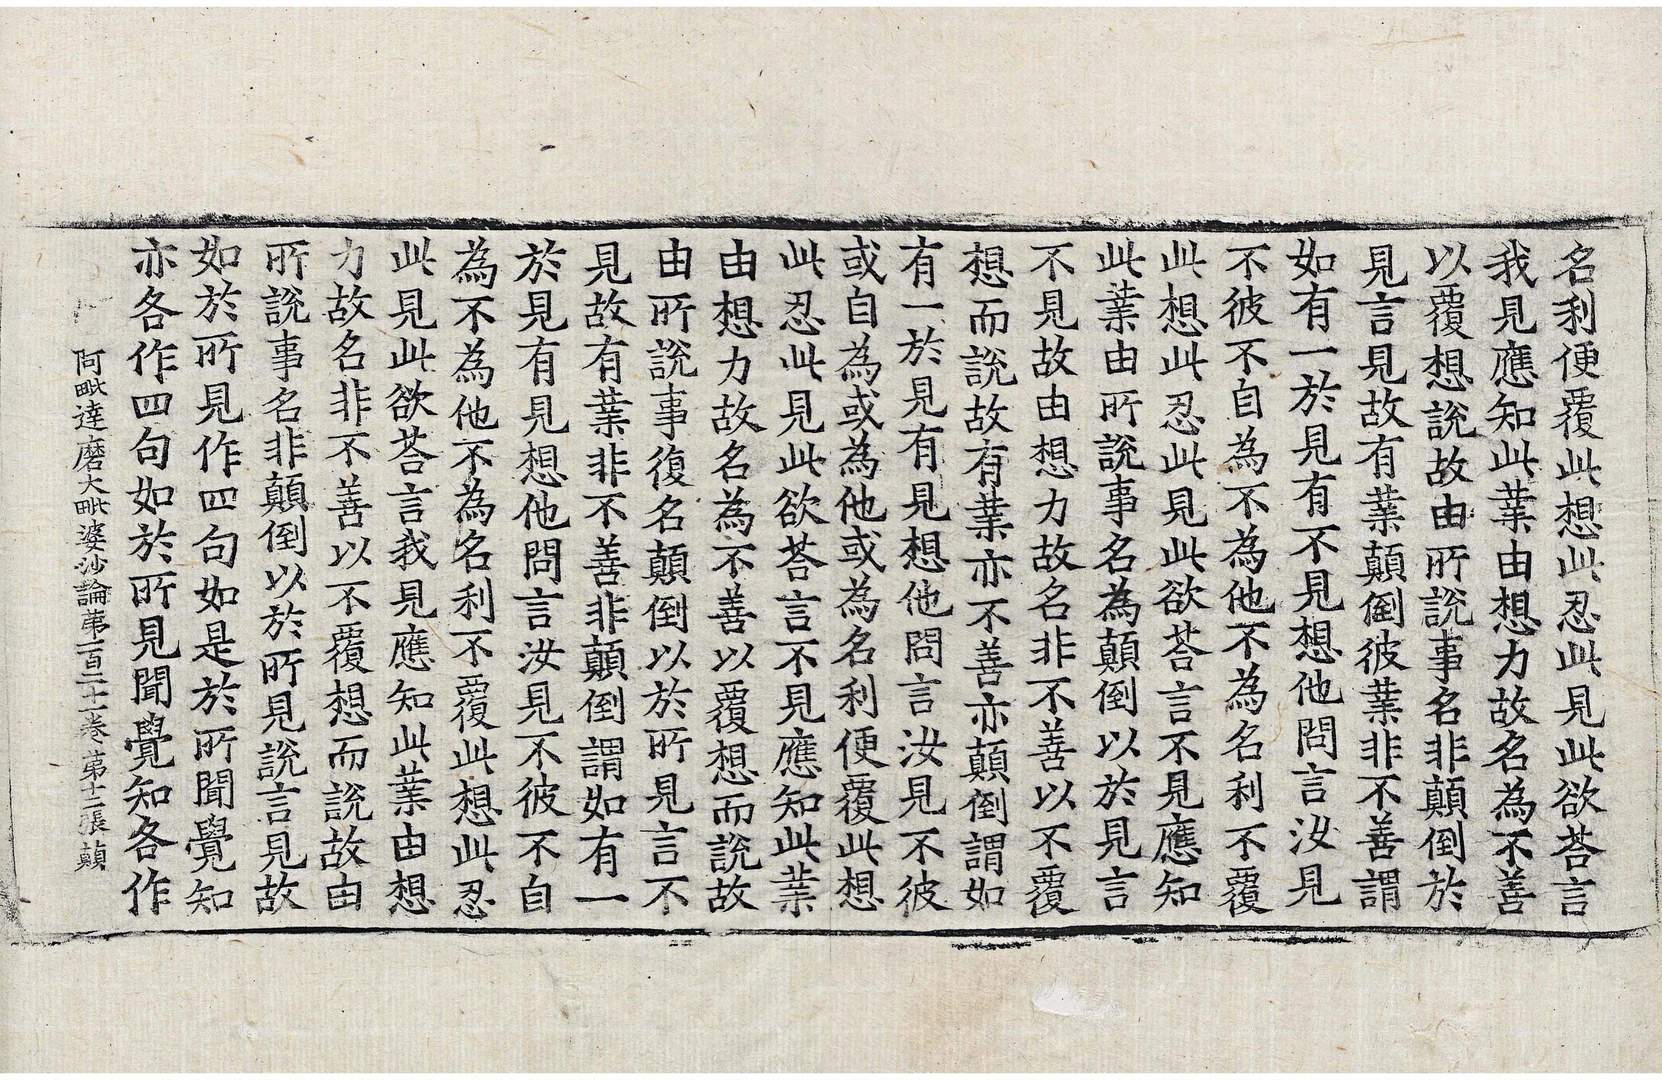 名利便覆此想此忍此見此欲荅言
我見應知此業由想力故名為不善
以覆想說故由所說事名非顛倒於
見言見故有業顛倒彼業非不善謂
如有一於見有不見想他問言汝見
不彼不自為不為他不為名利不覆
此想此忍此見此欲荅言不見應知
此業由所說事名為顛倒以於見言
不見故由想力故名非不善以不覆
想而說故有業亦不善亦顛倒謂如
有一於見有見想他問言汝見不彼
或自為或為他或為名利便覆此想
此忍此見此欲荅言不見應知此業
由想力故名為不善以覆想而說故
由所說事復名顛倒以於所見言不
見故有業非不善非顛倒謂如有一
於見有見想他問言汝見不彼不自
為不為他不為名利不覆此想此忍
此見此欲荅言我見應知此業由想
力故名非不善以不覆想而說故由
所說事名非顛倒以於所見說言見故
如於所見作四句如是於所聞覺知
亦各作四句如於所見聞覺知各作
阿毗達磨大毗婆沙論第一百二十一卷 第十二張 顛